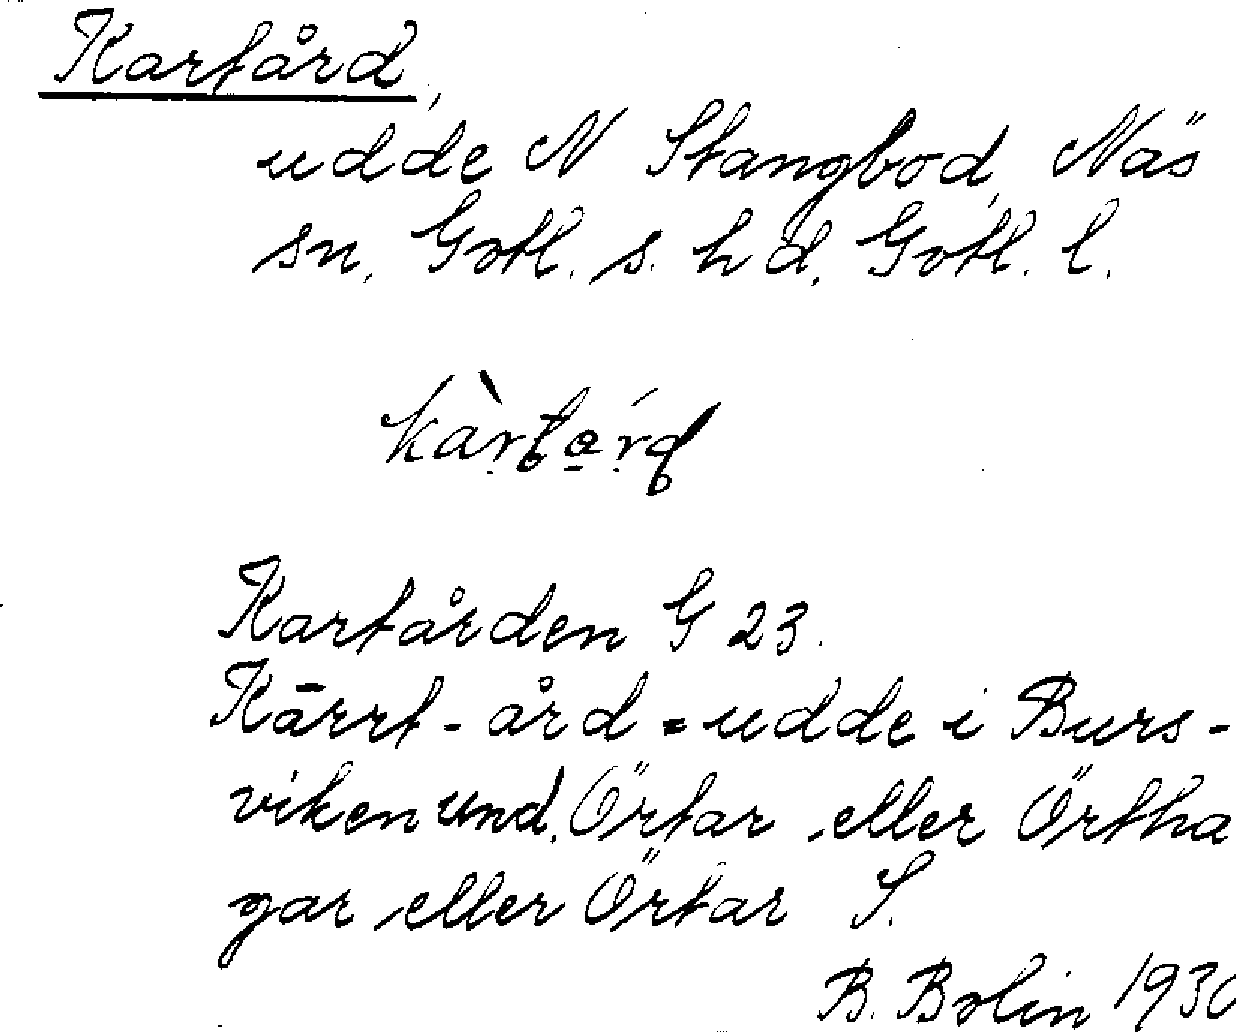 Kartård,
udde N Stangbod, Näs
sn, Gotl. s. hd, Gotl. l.
kàrtárd
Kartården G 23.
Kärrt-ård = udde i Burs-
viken und. Örtar eller Örtha
gar eller Örtar S.
B. Bolin 1930